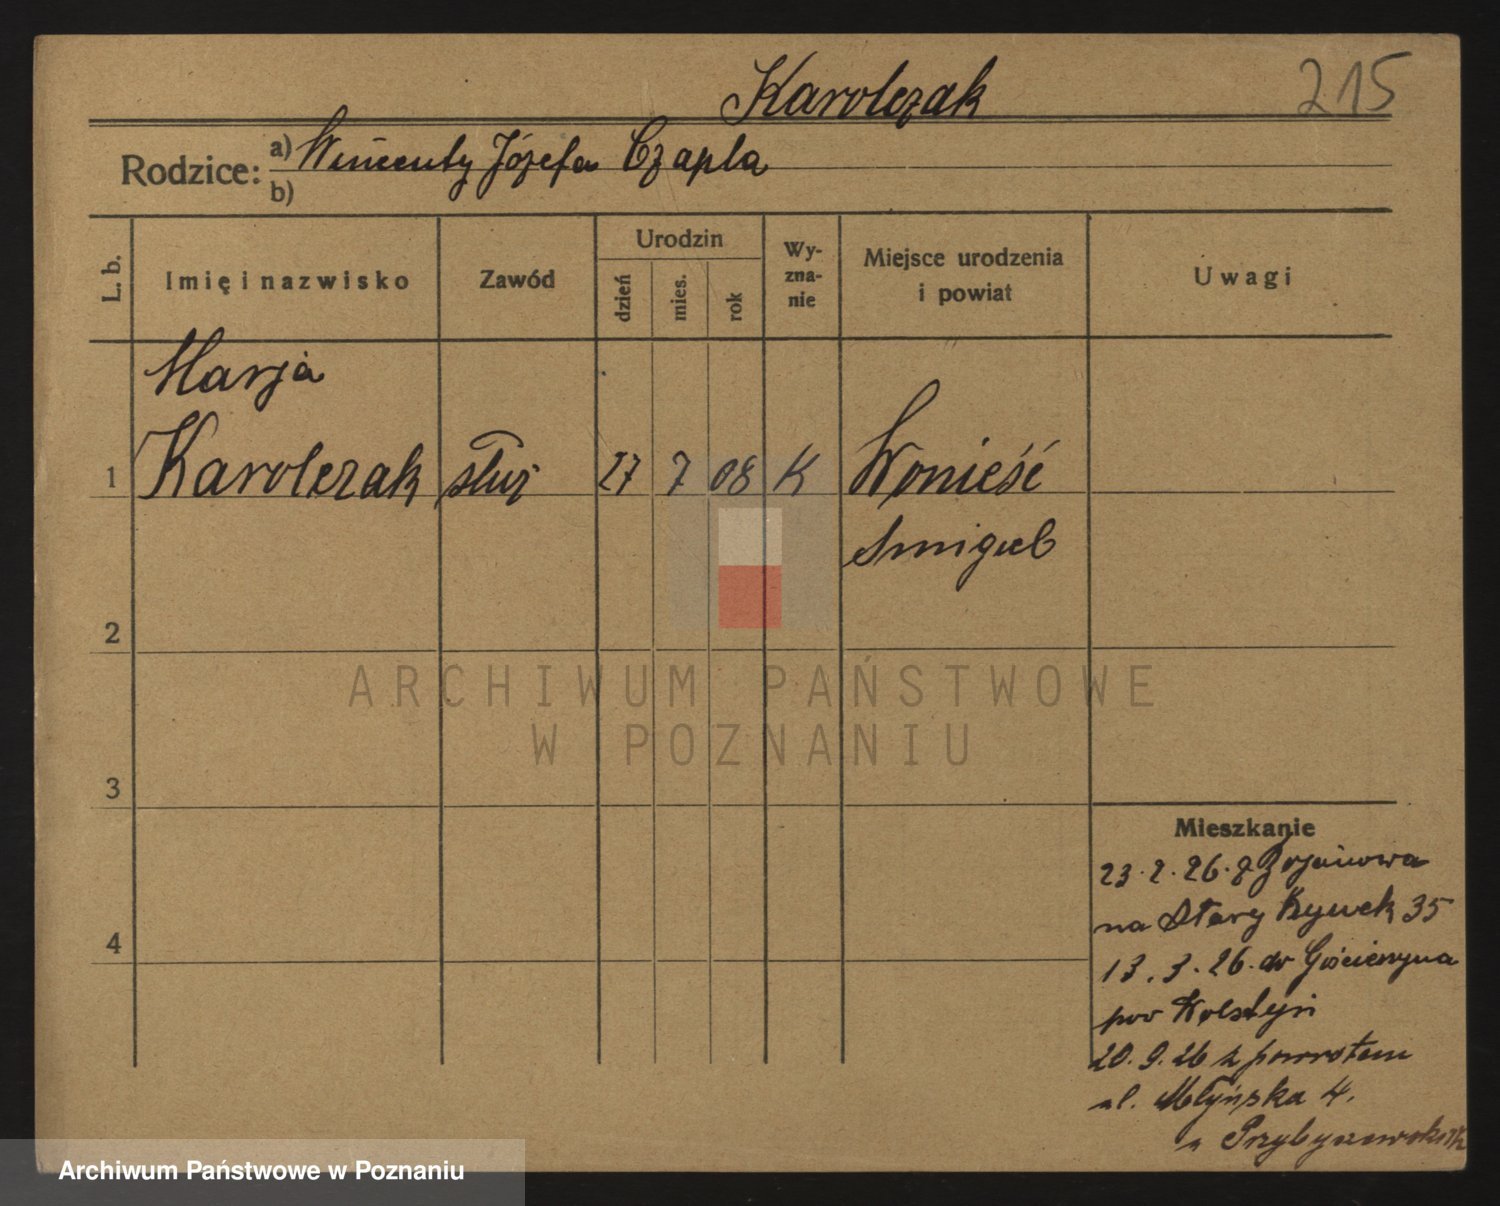 Karolczak 215
Rodzice: a) Wincenty Józefa Czapla
b)
L. b. Imię i nazwisko Zawód Urodzin dzień mies. rok Wy-zna-nie Miejsce urodzenia i powiat Uwagi
Marja
1 Karolczak służ 27 7 08 K Wonieść
Smigiel
2
3
4
Mieszkanie
23. 2. 26. z Bojanowa
na Stary Rynek 35
13. 3. 26. do Gościeszyna
pow Wolsztyn
20. 9. 26 z powrotem
ul. Młyńska 4.
u Przybyszewskich
ARCHIWUM PAŃSTWOWE
W POZNANIU
Archiwum Państwowe w Poznaniu